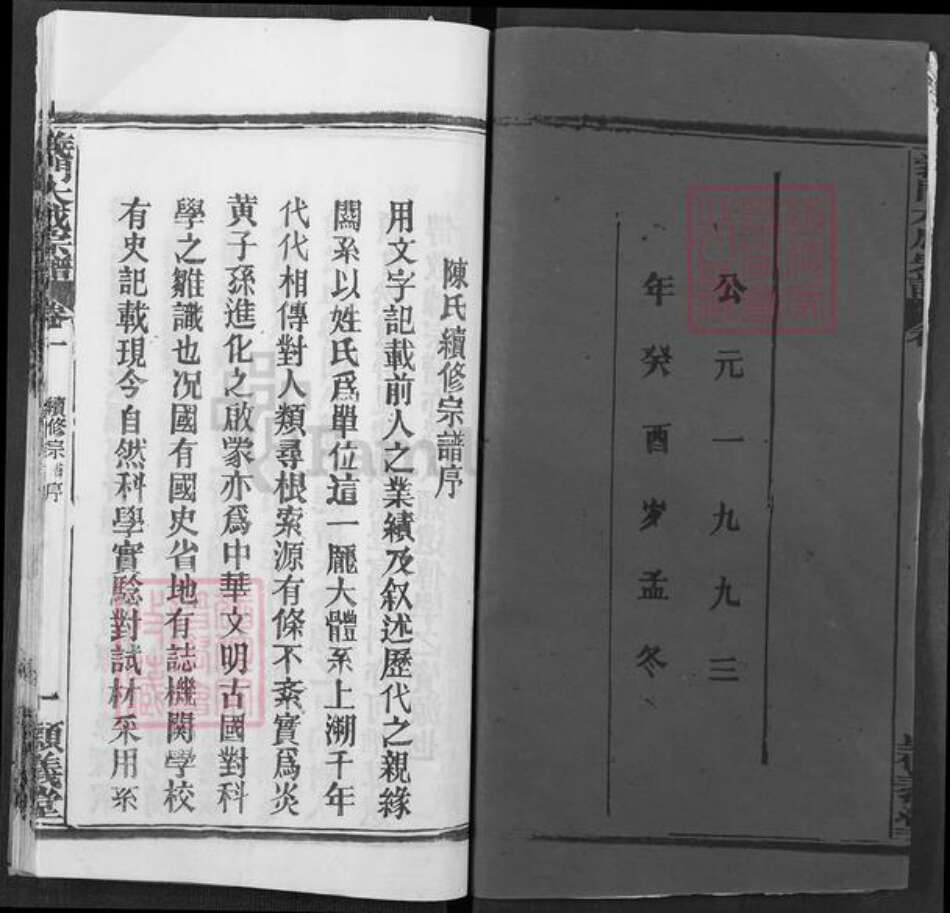 公元一九九三
年癸酉岁孟冬
陳氏續修宗譜序
用文字記載前人之業績及叙述歷代之親緣
關系以姓氏爲單位這一龐大體系上溯千年
代代相傳對人類尋根索源有條不紊實爲炎
黄子孫進化之啟蒙亦爲中華文明古國對科
學之雛識也况國有國史省地有誌機関學校
有史記載現今自然科學實驗對試材采用系
義門大成宗譜 卷一
續修宗譜序
一
顯義堂